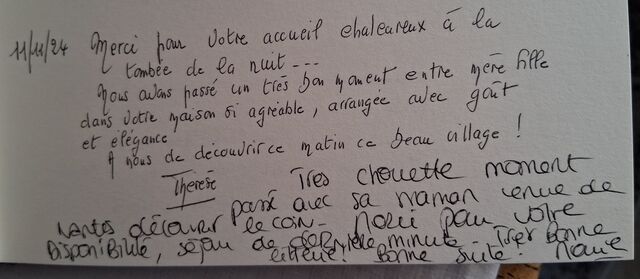 11/11/24 Merci pour votre accueil chaleureux à la
tombée de la nuit ---
Nous avons passé un très bon moment entre mère fille
dans votre maison si agréable, arrangée avec goût
et élégance
A nous de découvrir ce matin ce beau village !
Thérèse
Très chouette moment
passé avec sa maman venue de
Nantes découvrir le coin. Merci pour votre
Disponibilité, séjour de dernière minute Très Bonne
literie ! Bonne suite.